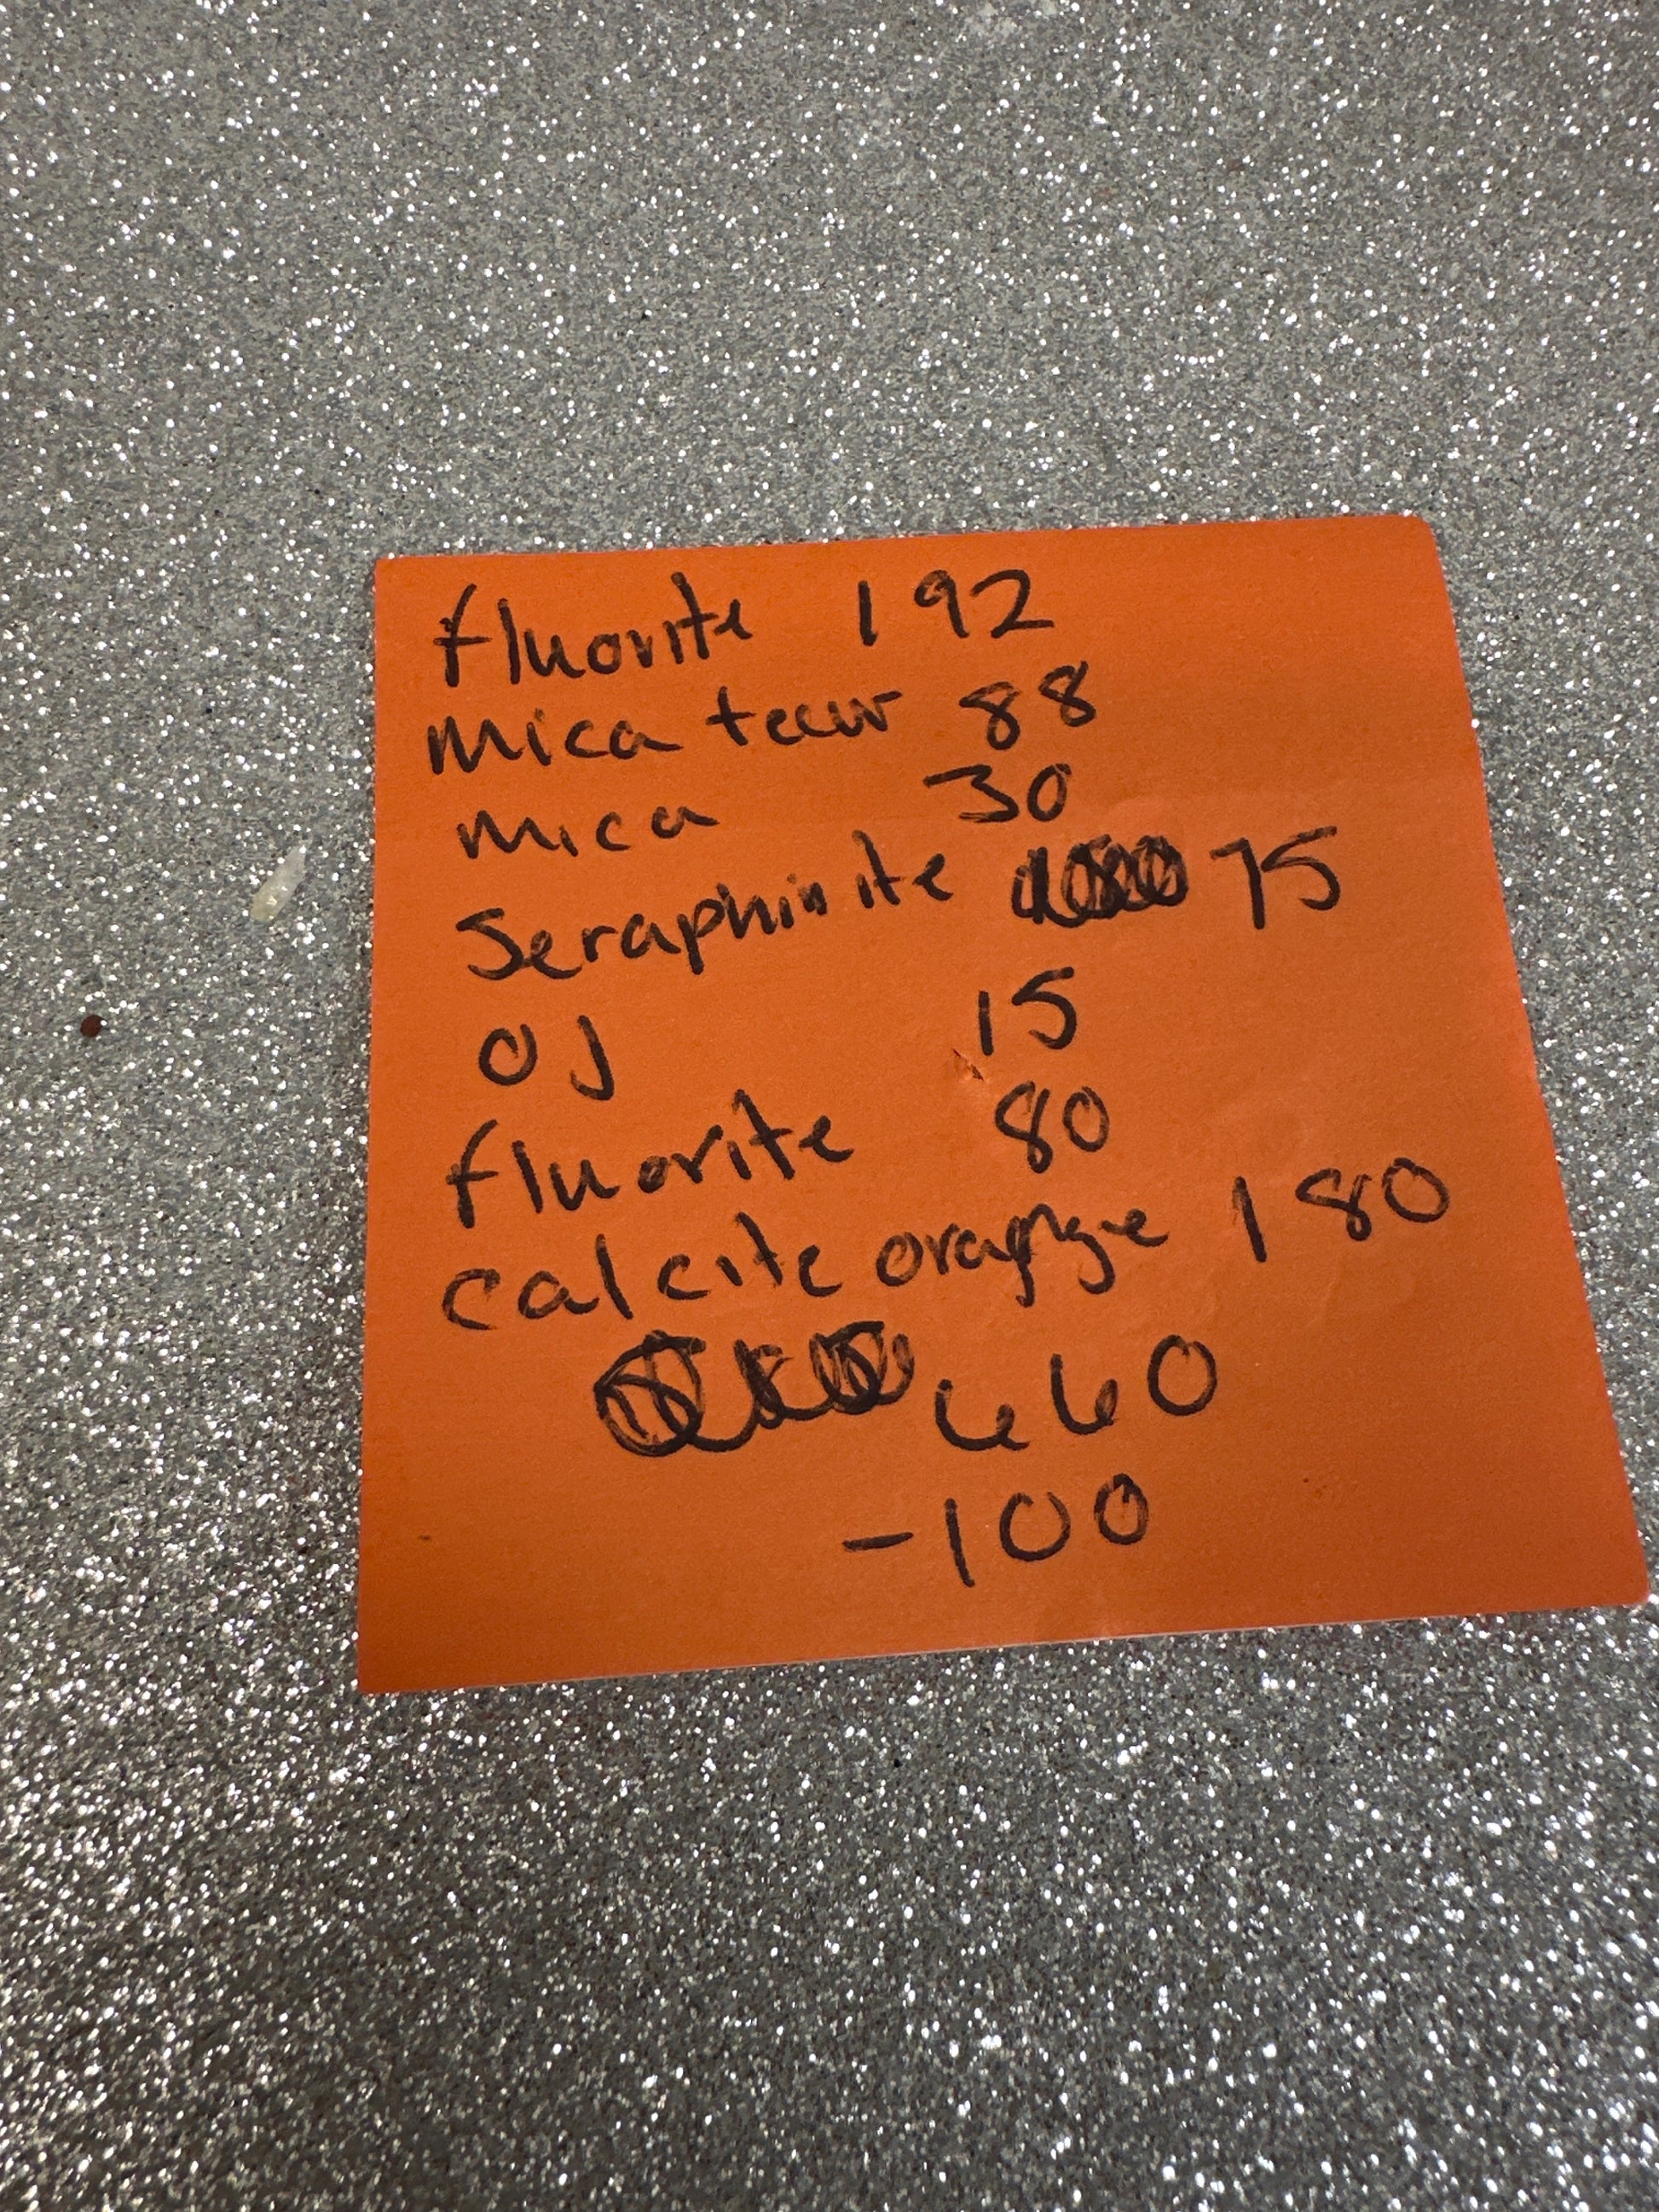 fluorite 192
mica tear 88
mica 30
Seraphinite 75
OJ 15
fluorite 80
calcite orange 180
660
-100